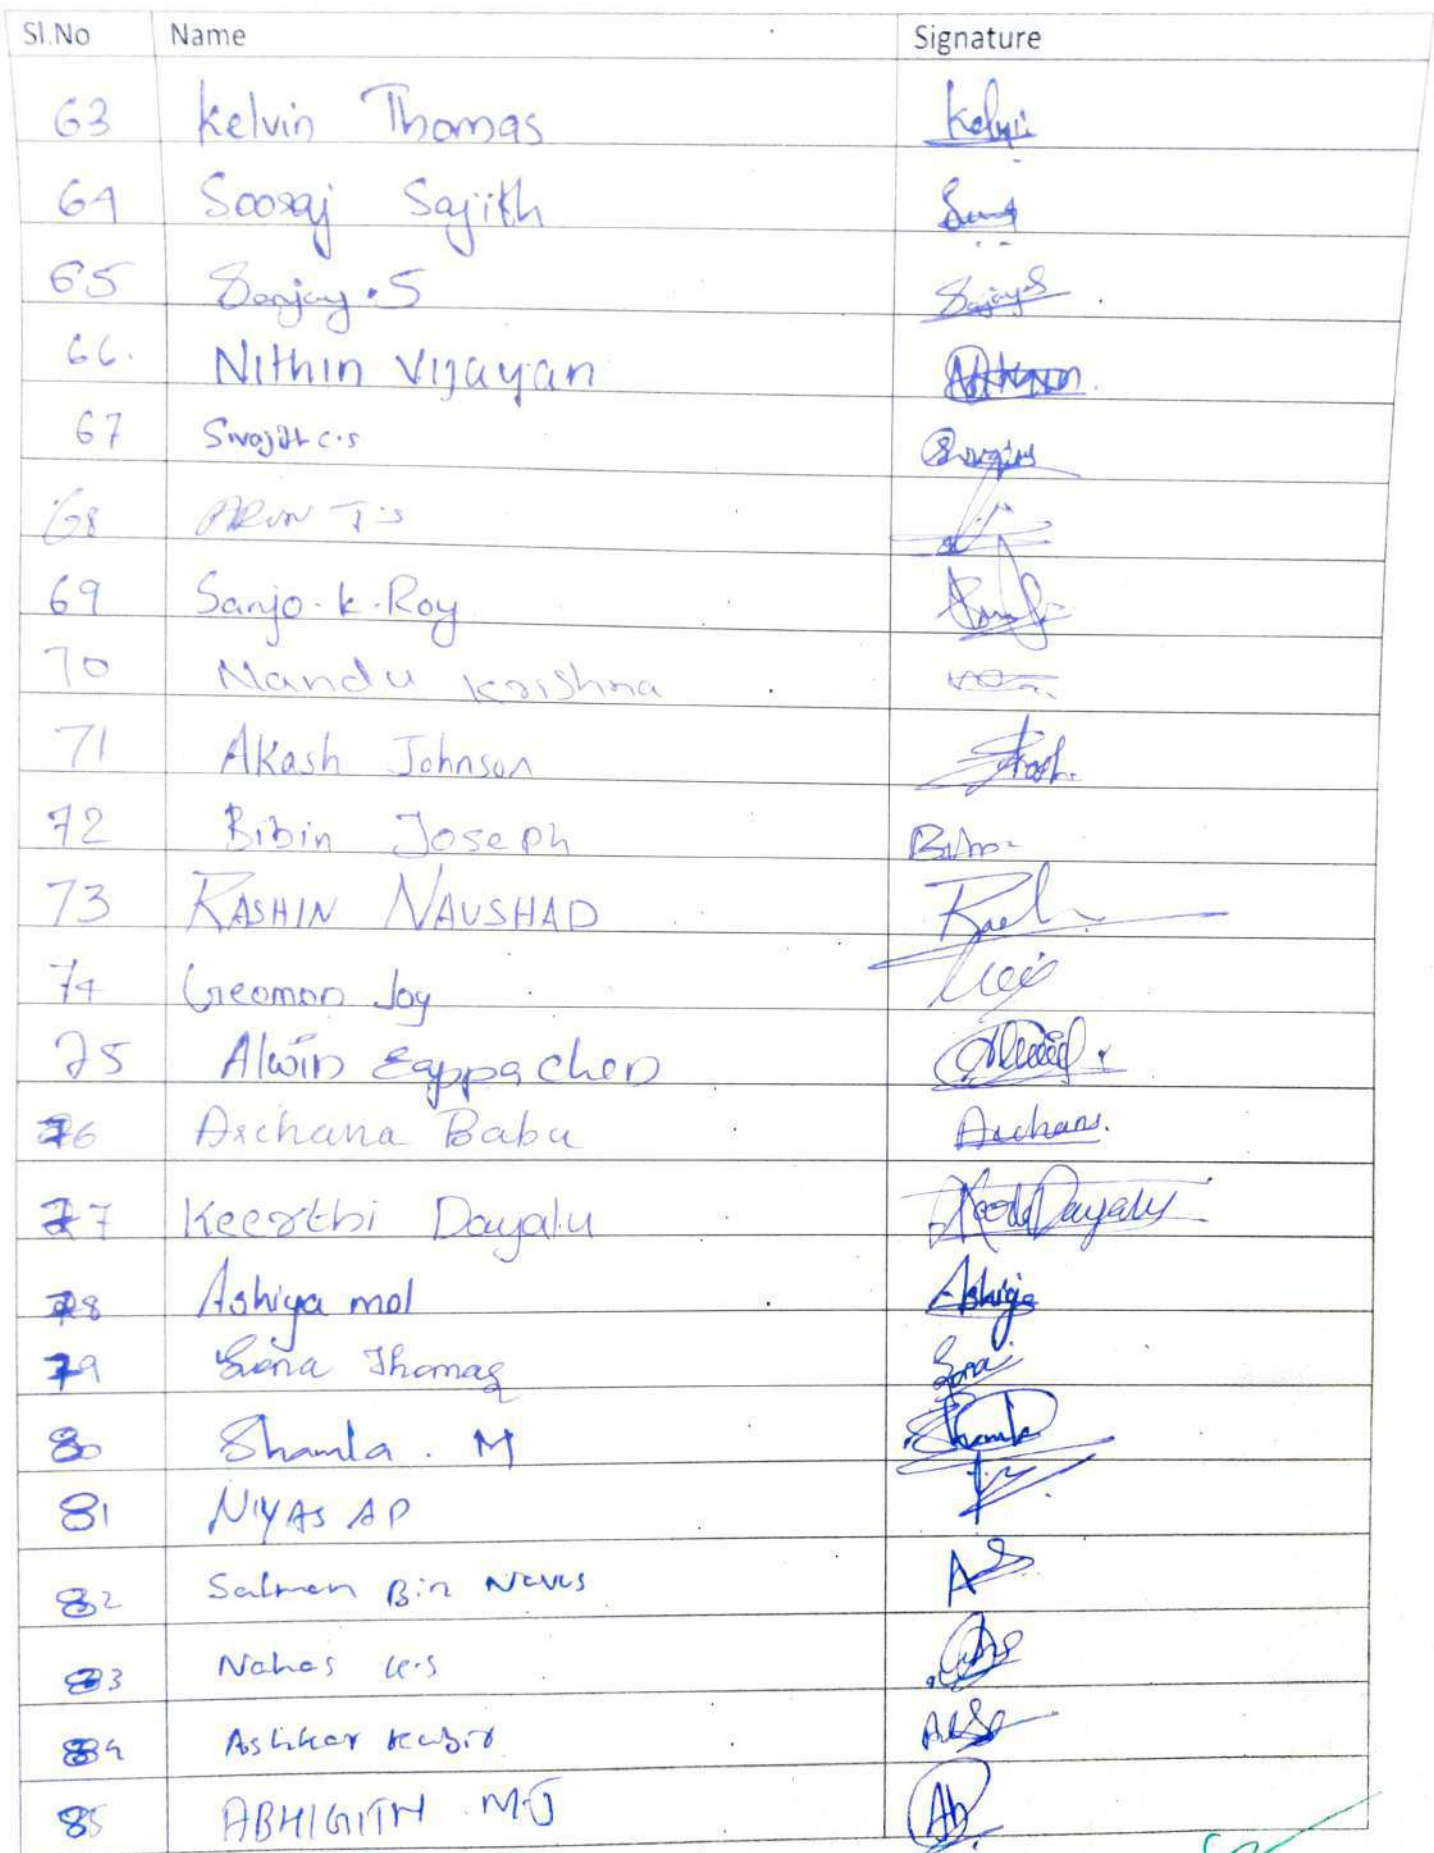 Sl.No Name Signature
63 Kelvin Thomas Kelvin
64 Sooraj Sajith
65 Sanjay . S Sanjay S
66. Nithin Vijayan
67 Swajith C.S
68 ARUN T.S
69 Sanjo . K . Roy
70 Nandu Krishna
71 Akash Johnson Akash.
72 Bibin Joseph
73 RASHIN NAUSHAD
74 Geomon Joy
75 Alwin Eappachen
76 Archana Babu Archana.
77 Keerthi Dayalu Dayalu
78 Ashiya mol Ashiya
79 Sona Thomas Sona
80 Shamla . M Shamla
81 NIYAS AP
82 Salman Bin Navas
83 Nahas K.S
84 Ashkar Kabir
85 ABHIGITH MJ Ab